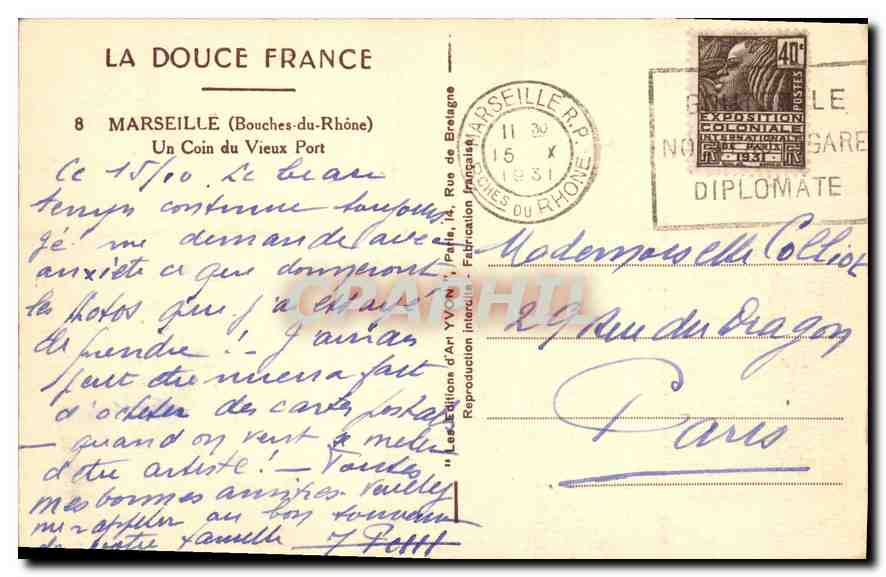 LA DOUCE FRANCE
8 MARSEILLE (Bouches-du-Rhône)
Un Coin du Vieux Port
Ce 15/10 Le beau
temps continue toujours
je me demande avec
anxiété ce que donneront
les photos que j'ai essayé
de prendre! - J'aurais
peut être mieux fait
d'acheter des cartes postales
- quand on veut se mêler
d'être artiste! - Toutes
mes bonnes amitiés. Veuillez
me rappeler au bon souvenir
de votre famille
"Les Editions d'Art YVON", Paris, 14, Rue de Bretagne
Reproduction interdite - Fabrication française
MARSEILLE R.P.
11 30
15 X
1931
BCHES DU RHONE
40c
POSTES
EXPOSITION
COLONIALE
INTERNATIONALE
DE PARIS
1931
GARE
DIPLOMATE
Mademoiselle Colliot
29 Rue du Dragon
Paris
CPAPHIL